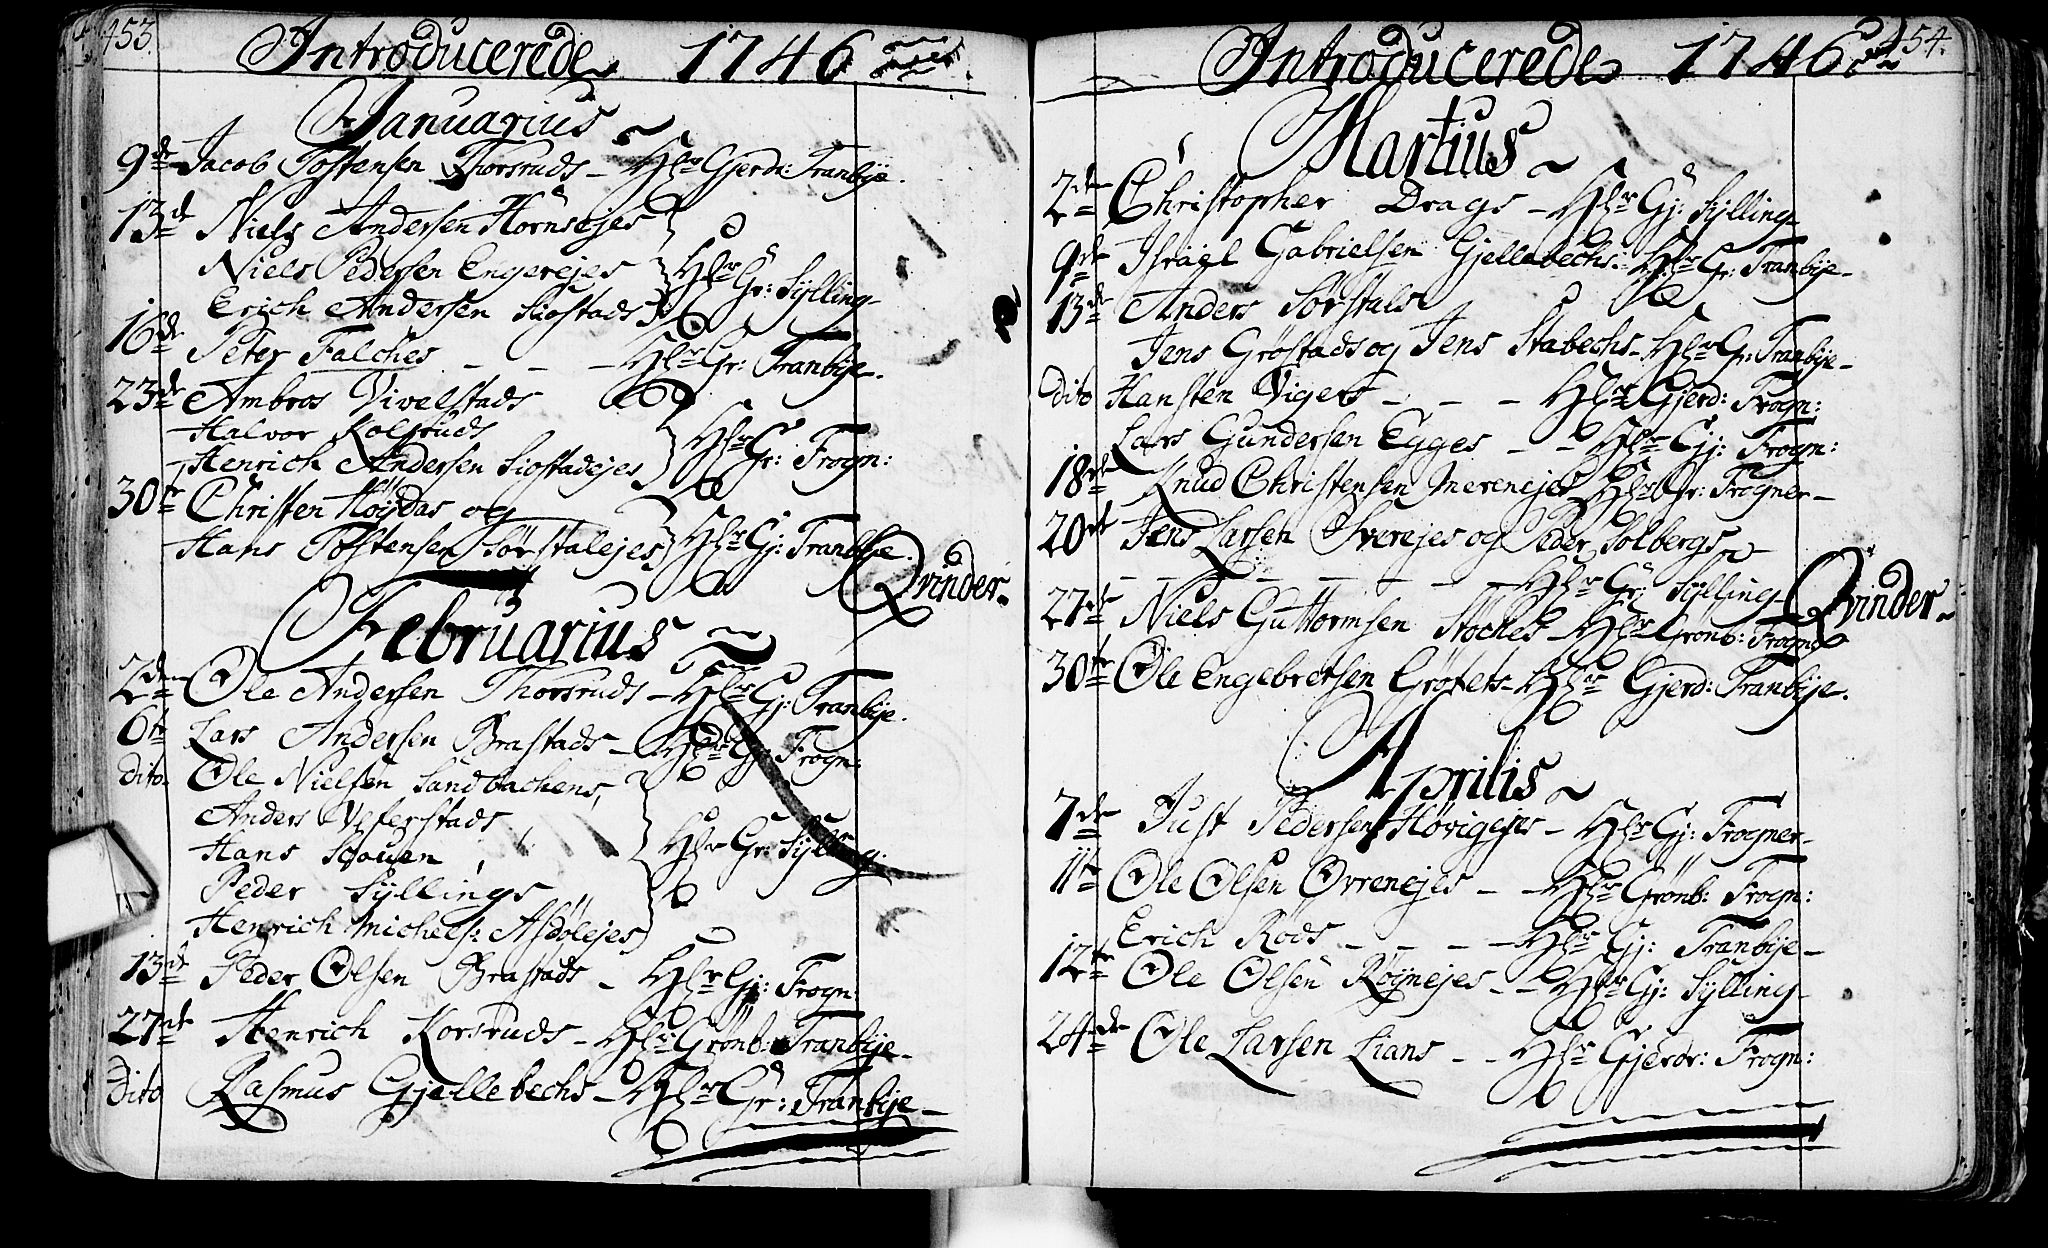 453.
Introducerede 1746
Januarius
9de Jacob Tostensen Thorsruds - Hlr Gjerdr: Tranbÿe.
13de Niels Andersen Hörnsejes
Niels Pedersen Engerejes Hlr Gr: Sÿlling
Erich Andersen Siostads
16de Peter Falches - - - Hlr Gr: Tranbÿe.
23de Ambros Vivelstads
Halvor Kolsruds Hlr Gr: Frogn:
Henrich Andersen Siostadejes
30te Christen Höydas og
Hans Tostensen Sörstalejes Hlr Gj: Tranbÿe.
Qvinder
Februarius
2den Ole Andersen Thorsruds - Hlr Gj: Tranbÿe.
6te Lars Andersen Brastads - Hlr Gr: Frogn:
dito. Ole Nielsen Sandbachens,
Anders Veferstads
Hans Schouen, Hlr Gr: Sÿlling:
Peder Sÿllings
Henrich Michels: Asdölejes
13de Peder Olsen Brastads - Hlr Gj: Frogn:
27de Henrich Korsruds - Hlr Grönb: Tranbÿe
dito Rasmus Gjellebechs - Hlr Gr: Tranbÿe
454.
Introducerede 1746
Martius
2den Christopher Drags - Hlr Gj: Sÿlling
9de Israel Gabrielsen Gjellebechs: Hlr Gr: Tranbÿe
13de Anders Sörstals
Jens Gröstads og Jens Stabechs - Hlr Gr: Tranbÿe
dito Hansten Vigers - - - Hlr Gjerd: Frogn:
Lars Gundersen Egges - - Hlr Gj: Frogn:
18de Knud Christensen Merenejes Hlr Gr: Frogner
20de Jens Larsen Sverejes og Peder Solbergs
- - - - - Hlr Gr: Sÿlling
Qvinder
27de Niels Guttormsen Stöches - Hlr Grönb: Frogn
30te Ole Engebretsen Gröfets - Hlr Gjerd: Tranbÿe.
Aprilis
7de Just Pedersen Hörigejes - Hlr Gj: Frogner
11te Ole Olsen Ovrenejes - - Hlr Grönb: Frogn:
Erich Röds - - - - Hlr Gj: Tranbÿe
12te Ole Olsen Rögnejes - - Hlr Gj: Sÿlling
24de Ole Larsen Lians - - Hlr Gjerdr: Frogn: